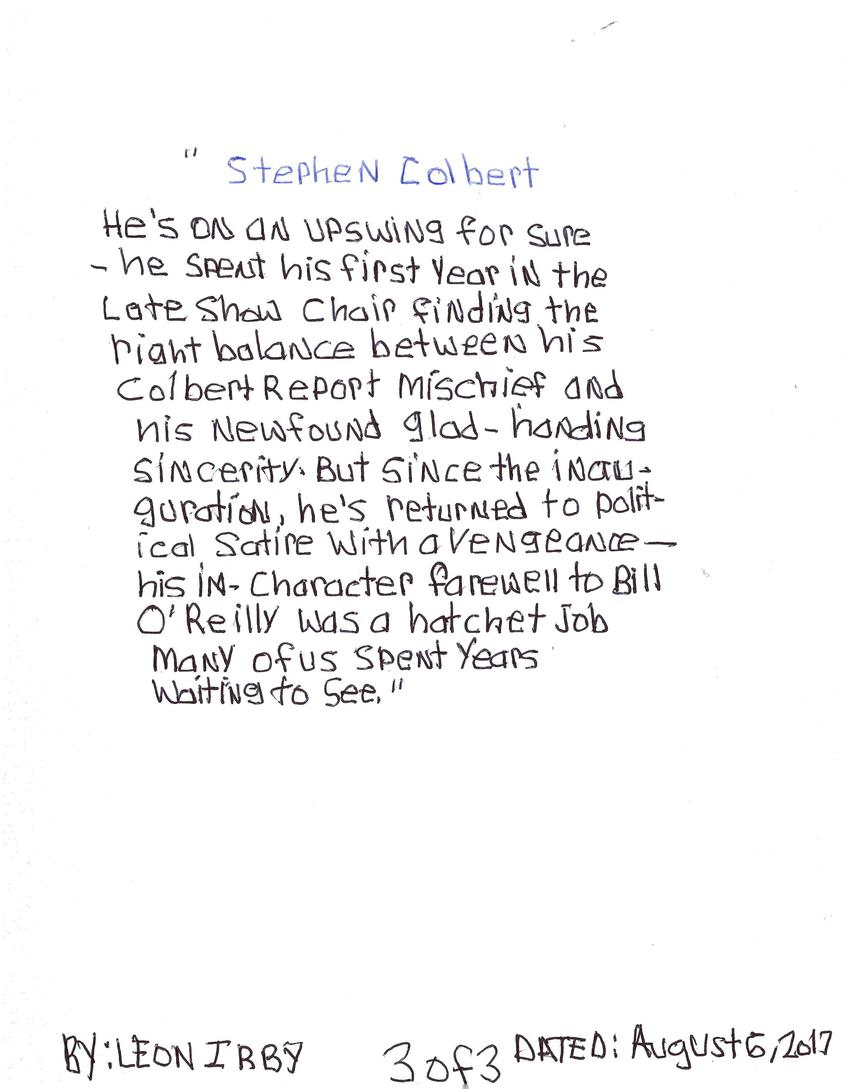 " Stephen Colbert
He's on an upswing for sure
- he spent his first year in the
Late Show Chair finding the
right balance between his
Colbert Report Mischief and
his Newfound glad-handing
sincerity. But since the inau-
guration, he's returned to polit-
ical Satire With a vengeance—
his in-Character farewell to Bill
O'Reilly was a hatchet Job
Many of us spent Years
Waiting to See."
BY: LEON IRBY 3 of 3 DATED: August 6, 2017